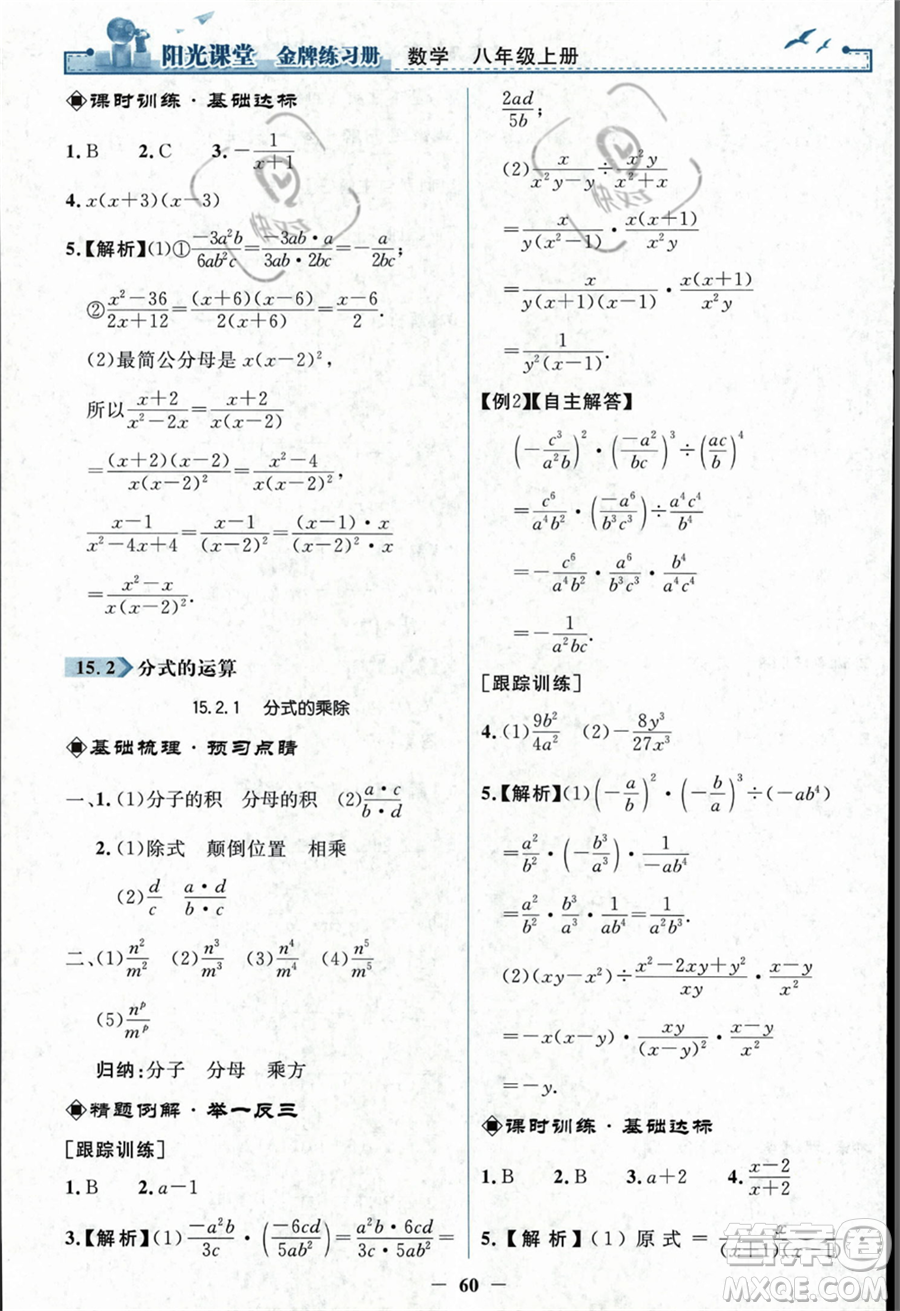 阳光课堂 金牌练习册 数学 八年级上册
课时训练·基础达标
1.B 2.C 3.-\frac{1}{x+1}
4.x(x+3)(x-3)
5.【解析】(1)①\frac{-3a^2b}{6ab^2c}=\frac{-3ab·a}{3ab·2bc}=-\frac{a}{2bc};
②\frac{x^2-36}{2x+12}=\frac{(x+6)(x-6)}{2(x+6)}=\frac{x-6}{2}.
(2)最简公分母是x(x-2)^2,
所以\frac{x+2}{x^2-2x}=\frac{x+2}{x(x-2)}
=\frac{(x+2)(x-2)}{x(x-2)(x-2)}=\frac{x^2-4}{x(x-2)^2},
\frac{x-1}{x^2-4x+4}=\frac{x-1}{(x-2)^2}=\frac{(x-1)·x}{(x-2)^2·x}
=\frac{x^2-x}{x(x-2)^2}.
15.2 分式的运算
15.2.1 分式的乘除
基础梳理·预习点睛
一、1.(1)分子的积 分母的积 (2)\frac{a·c}{b·d}
2.(1)除式 颠倒位置 相乘
(2)\frac{d}{c} \frac{a·d}{b·c}
二、(1)\frac{n^2}{m^2} (2)\frac{n^3}{m^3} (3)\frac{n^4}{m^4} (4)\frac{n^5}{m^5}
(5)\frac{n^p}{m^p}
归纳:分子 分母 乘方
精题例解·举一反三
[跟踪训练]
1.B 2.a-1
3.【解析】(1)\frac{-a^2b}{3c}·(\frac{-6cd}{5ab^2})=\frac{a^2b·6cd}{3c·5ab^2}=
\frac{2ad}{5b};
(2)\frac{x}{x^2y-y}÷\frac{x^2y}{x^2+x}
=\frac{x}{y(x^2-1)}·\frac{x(x+1)}{x^2y}
=\frac{x}{y(x+1)(x-1)}·\frac{x(x+1)}{x^2y}
=\frac{1}{y^2(x-1)}.
【例2】【自主解答】
(-\frac{c^3}{a^2b})^2·(\frac{-a^2}{bc})^3÷(\frac{ac}{b})^4
=\frac{c^6}{a^4b^2}·(\frac{-a^6}{b^3c^3})÷\frac{a^4c^4}{b^4}
=-\frac{c^6}{a^4b^2}·\frac{a^6}{b^3c^3}·\frac{b^4}{a^4c^4}
=-\frac{1}{a^2bc}.
[跟踪训练]
4.(1)\frac{9b^2}{4a^2} (2)-\frac{8y^3}{27x^3}
5.【解析】(1)(-\frac{a}{b})^2·(-\frac{b}{a})^3÷(-ab^4)
=\frac{a^2}{b^2}·(-\frac{b^3}{a^3})·\frac{1}{-ab^4}
=\frac{a^2}{b^2}·\frac{b^3}{a^3}·\frac{1}{ab^4}=\frac{1}{a^2b^3}.
(2)(xy-x^2)÷\frac{x^2-2xy+y^2}{xy}·\frac{x-y}{x^2}
=-x(x-y)·\frac{xy}{(x-y)^2}·\frac{x-y}{x^2}
=-y.
课时训练·基础达标
1.B 2.B 3.a+2 4.\frac{x-2}{x+2}
5.【解析】(1)原式=\frac{x}{(x+1)(x-1)}
60
答案圈
MXQE.COM